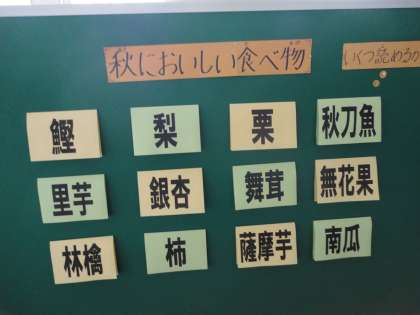 秋においしい食べ物
いくつ読めるか
鰹 梨 栗 秋刀魚
里芋 銀杏 舞茸 無花果
林檎 柿 薩摩芋 南瓜